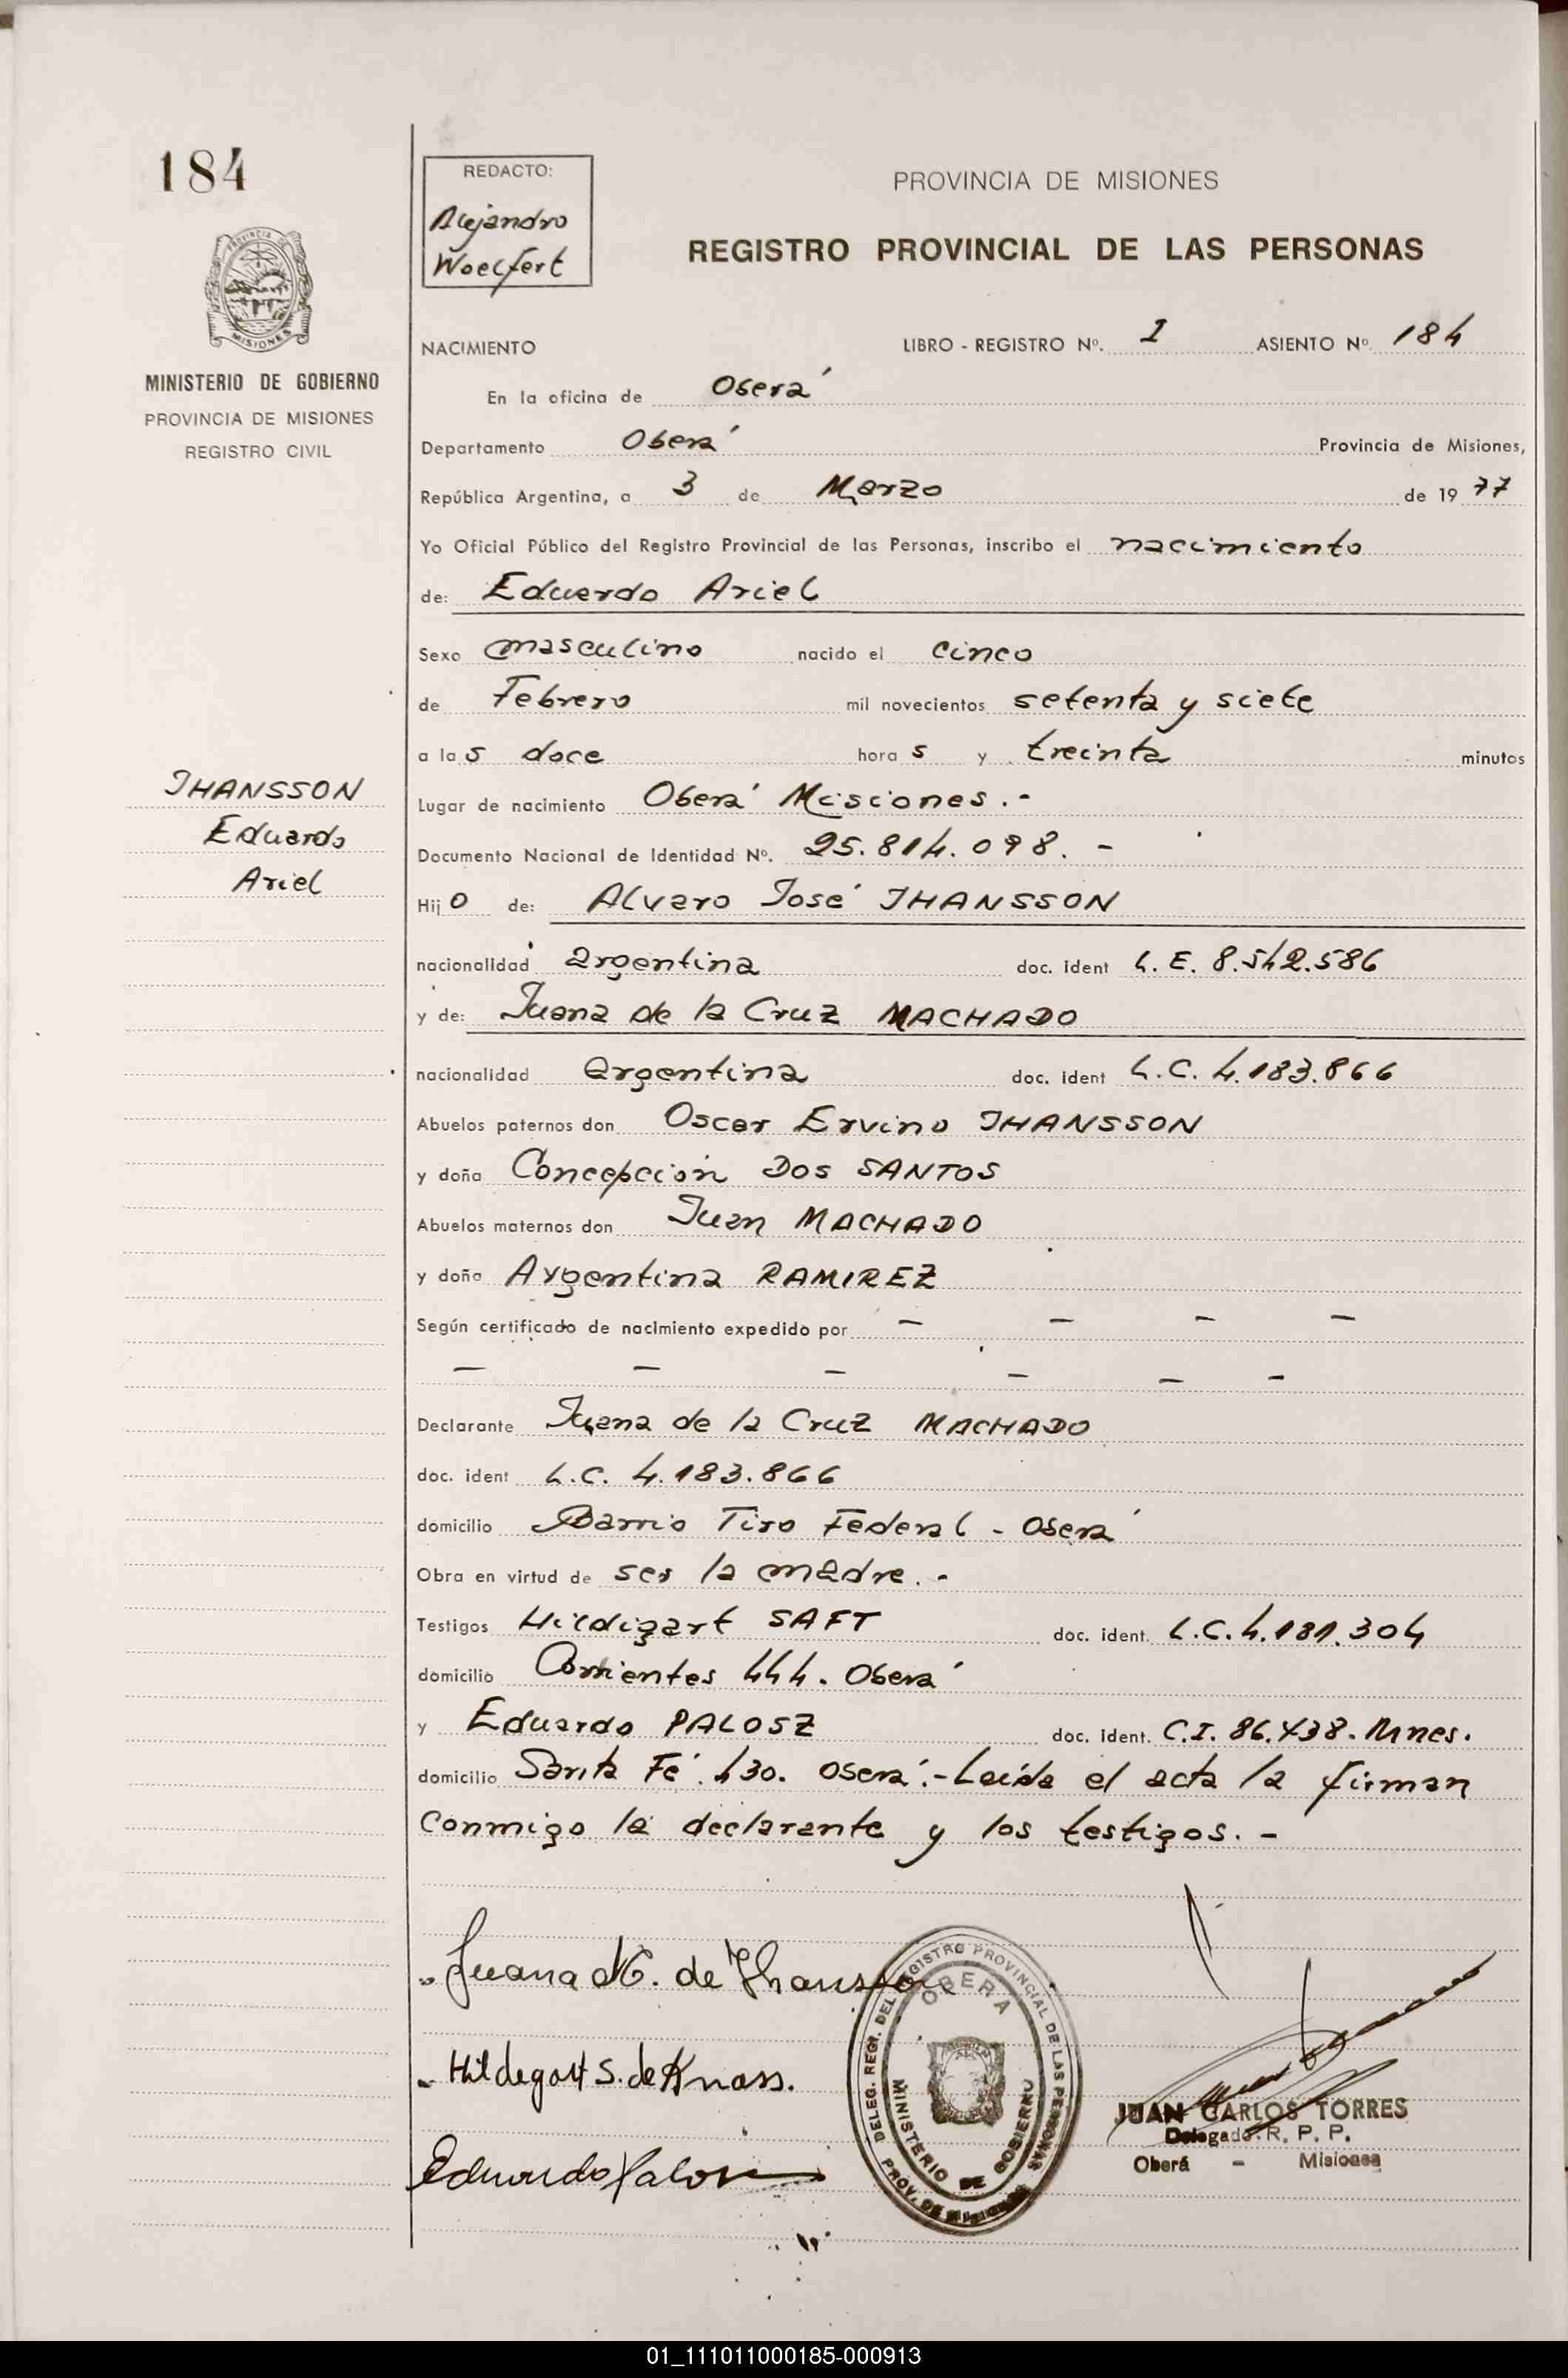 184
PROVINCIA DE MISIONES
MINISTERIO DE GOBIERNO
PROVINCIA DE MISIONES
REGISTRO CIVIL
JHANSSON
Eduardo
Ariel
REDACTO:
Alejandro
Woelfert
PROVINCIA DE MISIONES
REGISTRO PROVINCIAL DE LAS PERSONAS
NACIMIENTO LIBRO - REGISTRO Nº. I ASIENTO Nº 184
En la oficina de Oberá
Departamento Oberá Provincia de Misiones,
República Argentina, a 3 de Marzo de 19 77
Yo Oficial Público del Registro Provincial de las Personas, inscribo el nacimiento
de: Eduardo Ariel
Sexo masculino nacido el cinco
de Febrero mil novecientos setenta y siete
a las doce horas y treinta minutos
Lugar de nacimiento Oberá Misiones.-
Documento Nacional de Identidad Nº. 25.814.098.-
Hijo de: Alvaro José JHANSSON
nacionalidad argentina doc. ident L.E. 8.542.586
y de: Juana de la Cruz MACHADO
nacionalidad argentina doc. ident L.C. 4.183.866
Abuelos paternos don Oscar Ervino JHANSSON
y doña Concepción DOS SANTOS
Abuelos maternos don Juan MACHADO
y doña Argentina RAMIREZ
Según certificado de nacimiento expedido por - - - -
- - - - - -
Declarante Juana de la Cruz MACHADO
doc. ident L.C. 4.183.866
domicilio Barrio Tiro Federal - Oberá
Obra en virtud de ser la madre.-
Testigos Hildigart SAFT doc. ident. L.C. 4.181.304
domicilio Corrientes 444. Oberá
y Eduardo PALOSZ doc. ident. C.I. 86.438. Mnes.
domicilio Santa Fé 430. Oberá.- Leída el acta la firman
conmigo la declarante y los testigos.-
Juana M. de Jhansson
Hildegart S. de Knass.
Eduardo Palosz
DELEG. REGI. DEL REGISTRO PROVINCIAL DE LAS PERSONAS
OBERA
MINISTERIO DE GOBIERNO
PROV. DE MISIONES
JUAN CARLOS TORRES
Delegado R. P. P.
Oberá - Misiones
01_111011000185-000913